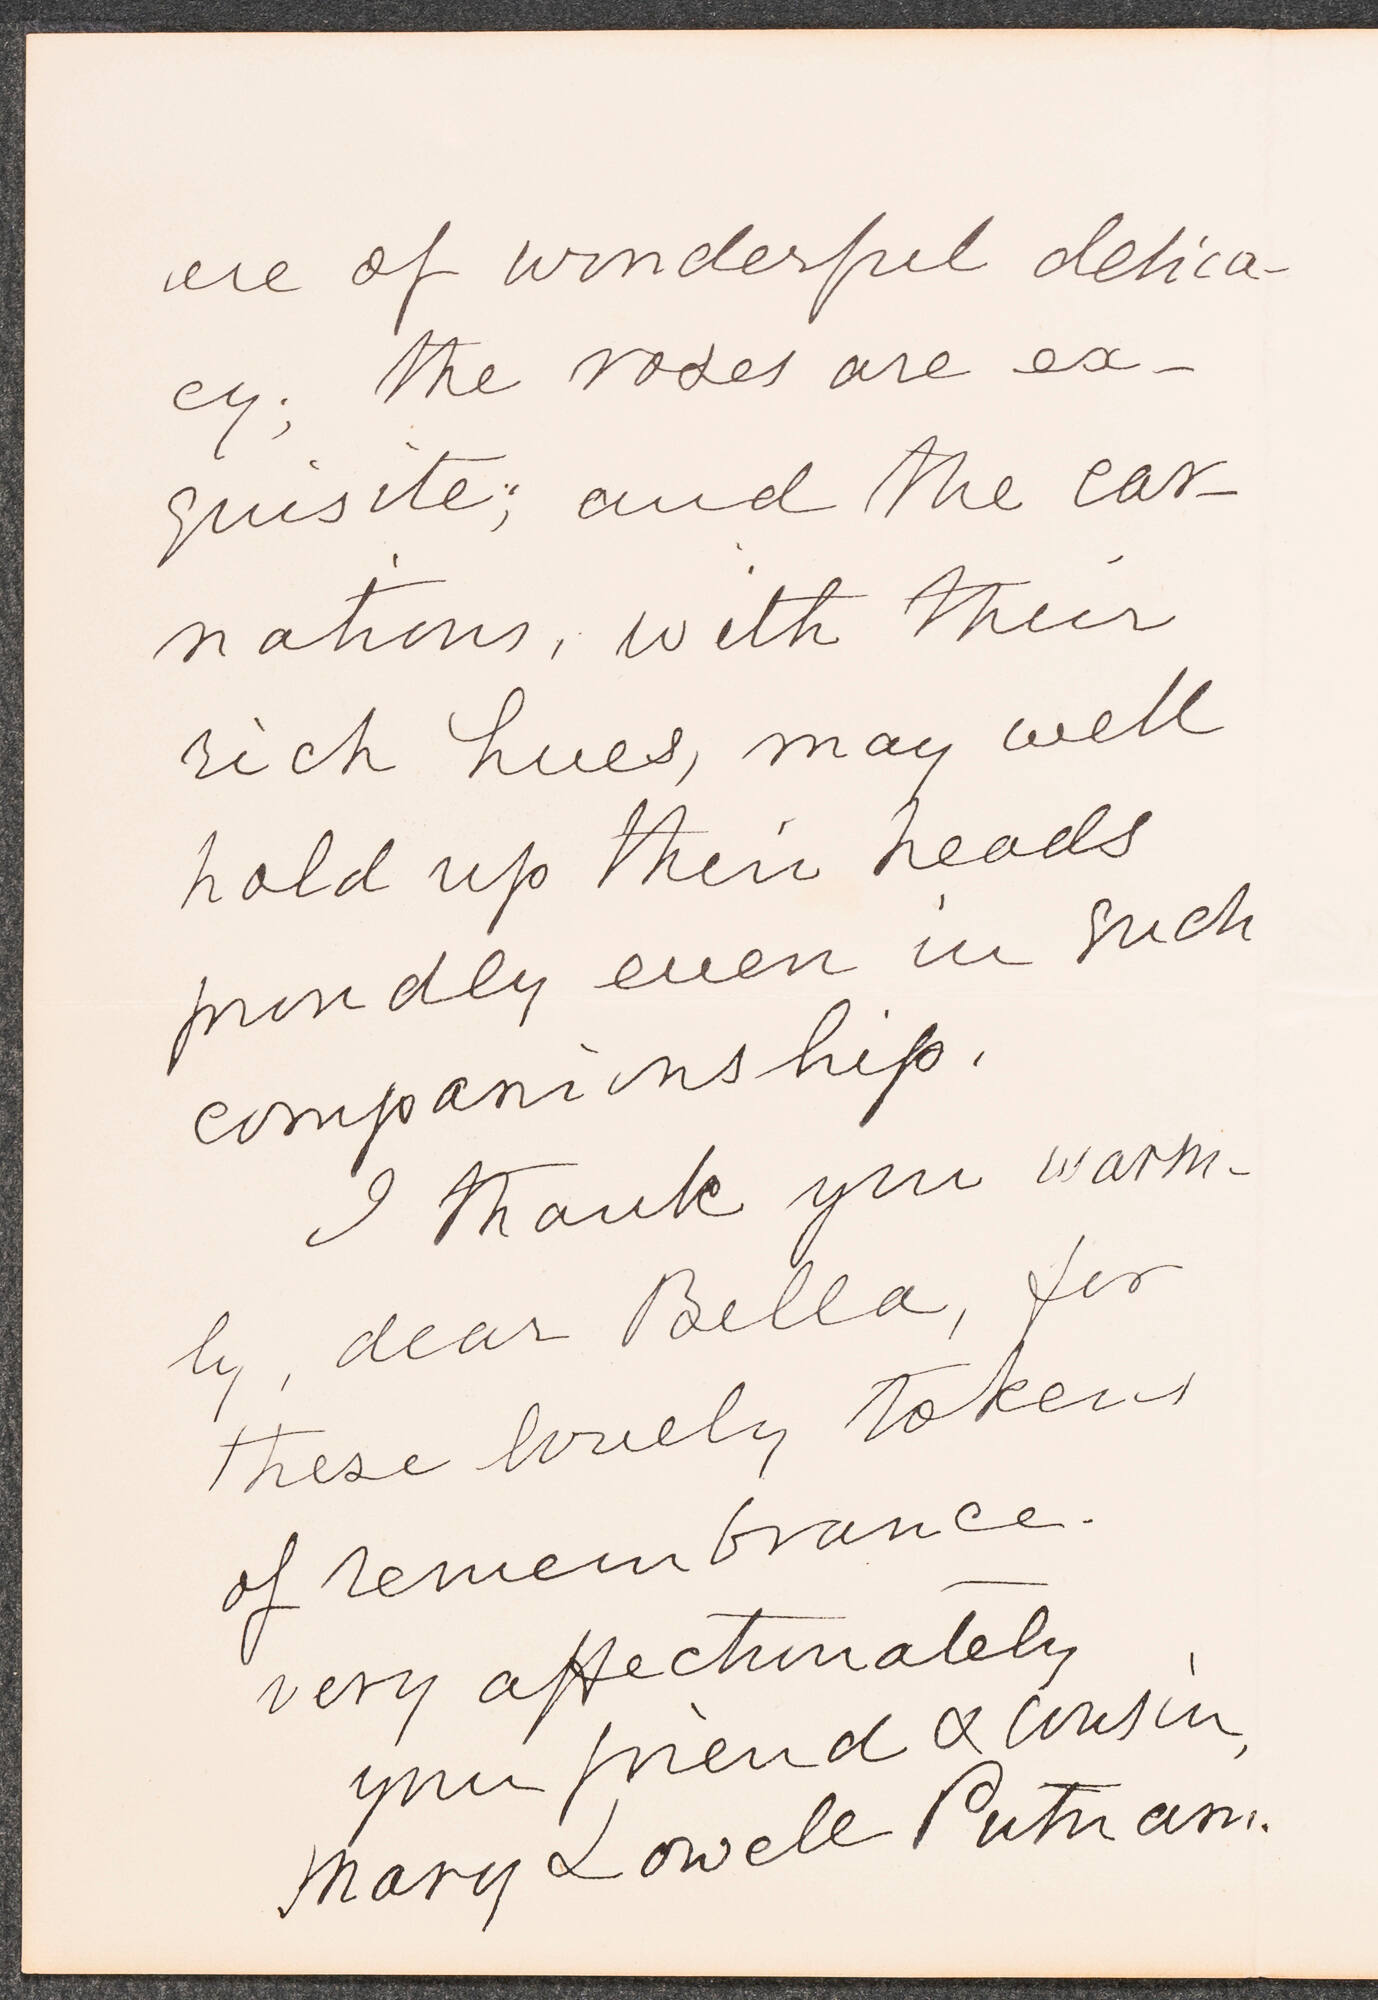 are of wonderful delica-
cy; the roses are ex-
quisite; and the car-
nations, with their
rich hues, may well
hold up their heads
proudly even in such
companionship.
I thank you warm-
ly, dear Bella, for
these lovely tokens
of remembrance.
very affectionately
your friend & cousin,
Mary Lowell Putnam.